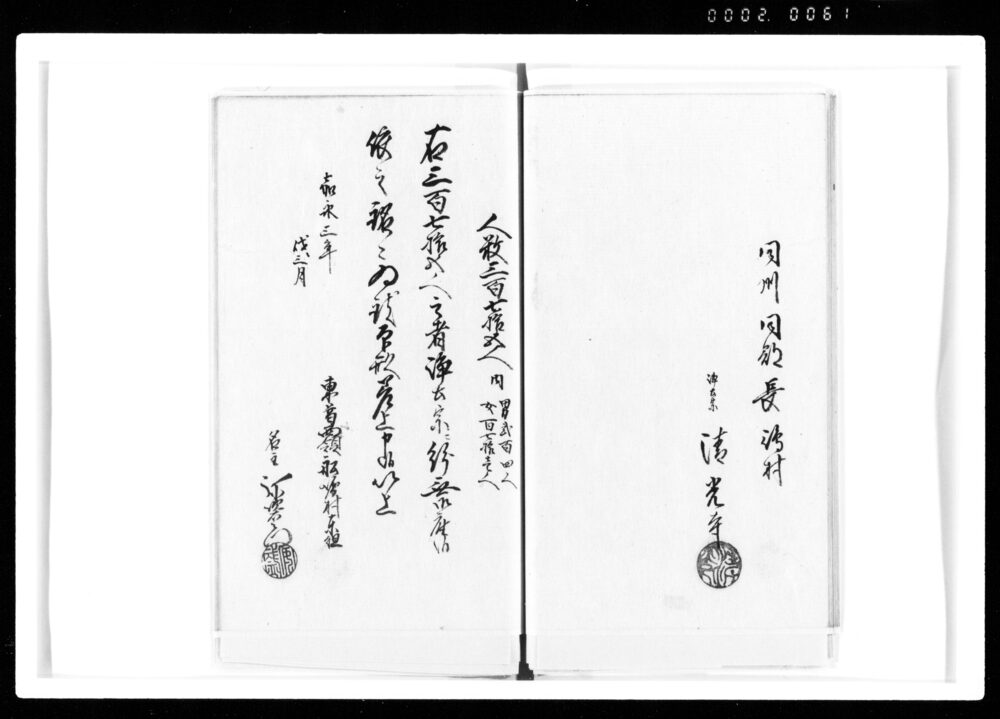 0002. 0061
同州同郡長嶋村
浄土宗
清光寺
人数三百七拾五人
内
男弐百四人
女百七拾壱人
右三百七拾五人之者浄土宗ニ紛無御座候
依之銘々印形差上申処以上
嘉永三年
戌三月
東葛西領船堀村東組
名主